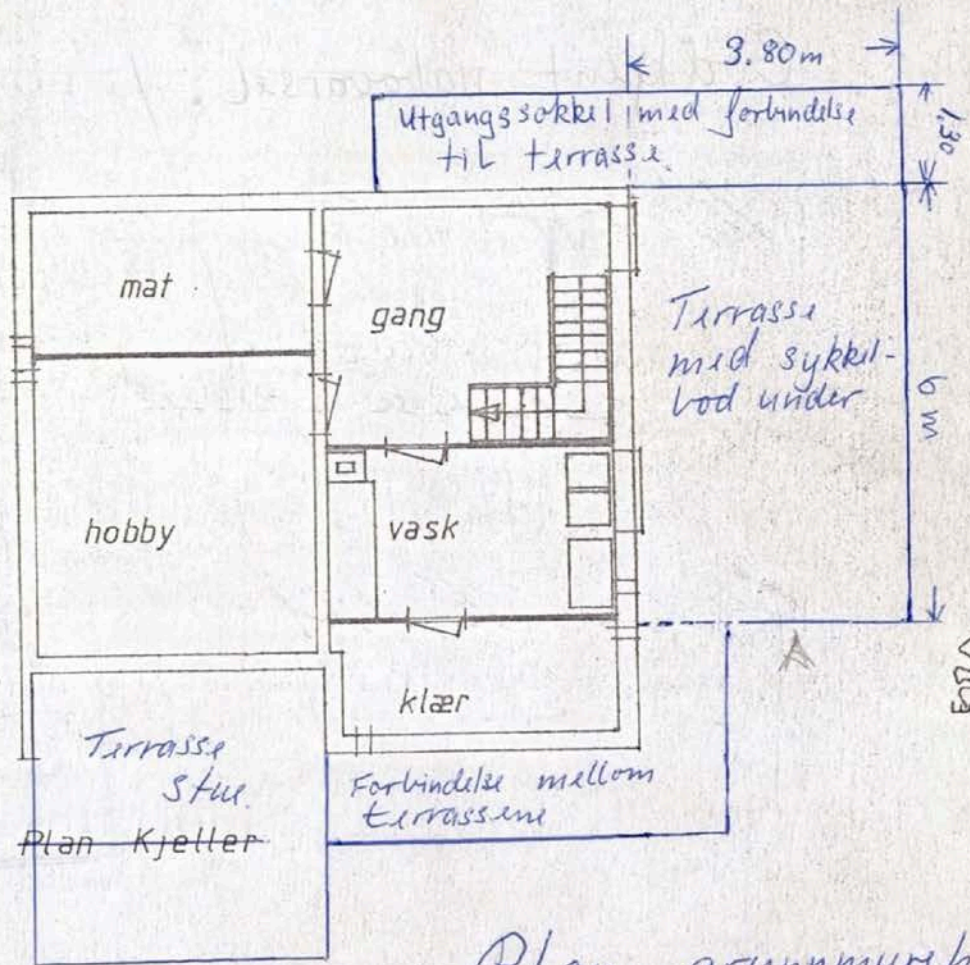 3.80m
1,30
Utgangssokkel med forbindelse
til terrasse.
mat
gang
Terrasse
med sykkel-
bod under
6 m
hobby
vask
klær
Terrasse
stue.
Forbindelse mellom
terrassene
Plan Kjeller
A
Plan grunnmur